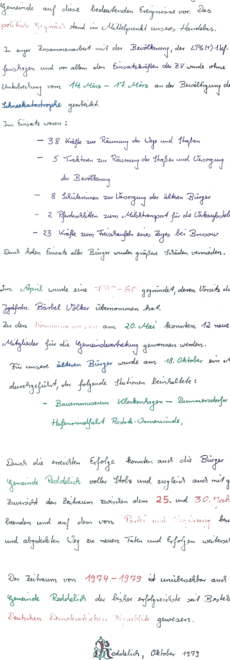 Gemeinde auf diese bedeutenden Ereignisse vor. Das
politische Gespräch stand im Mittelpunkt unseres Handelns.
In enger Zusammenarbeit mit der Bevölkerung, der LPG(T)
und vor allem den Einsatzkräften der ZV wurde ohne
Unterbrechung vom 14. März - 17. März an der Bewältigung der
Schneekatastrophe gearbeitet.
Im Einsatz waren:
- 38 Kräfte zur Räumung der Wege und Straßen
- 5 Traktoren zur Räumung der Straßen und Versorgung
der Bevölkerung
- 8 Schülerinnen zur Versorgung der älteren Bürger
- 2 Pferdeschlitten zum Milchtransport für die
- 23 Kräfte zum Freischaufeln eines Zuges bei
Dank hohem Einsatz aller Bürger wurden größere Schäden vermieden.
Im April wurde eine gegründet, deren Vorsitz die
Jgdfrdn. Bärbel Völker übernommen hat.
Zu den am 20. Mai konnten 12 neue
Mitglieder für die Gemeindevertretung gewonnen werden.
Für unsere älteren Bürger wurde am 18. Oktober ein
durchgeführt, der folgende Stationen beinhaltete:
- Bauernmuseum Klockenhagen - Dummersdorfer
Hafenrundfahrt Rostock-Warnemünde,
Durch die erreichten Erfolge konnten auch die Bürger
Gemeinde Reddelich voller Stolz und zugleich auch mit
Zuversicht den Zeitraum zwischen dem 25. und 30. Jahr
beenden und auf dem von Partei und Regierung
und abgesteckten Weg zu neuen Taten und Erfolgen
Der Zeitraum von 1974 - 1979 ist unübersehbar auch
Gemeinde Reddelich der bisher erfolgreichste seit
Deutschen Demokratischen Republik gewesen.
Reddelich, Oktober 1979